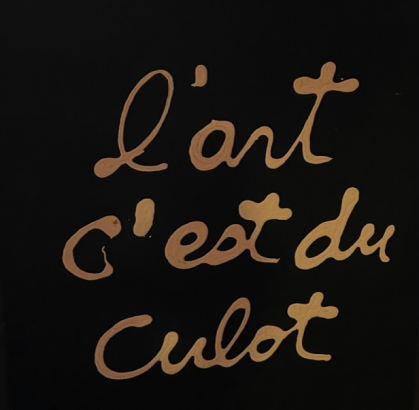 l'art
c'est du
culot